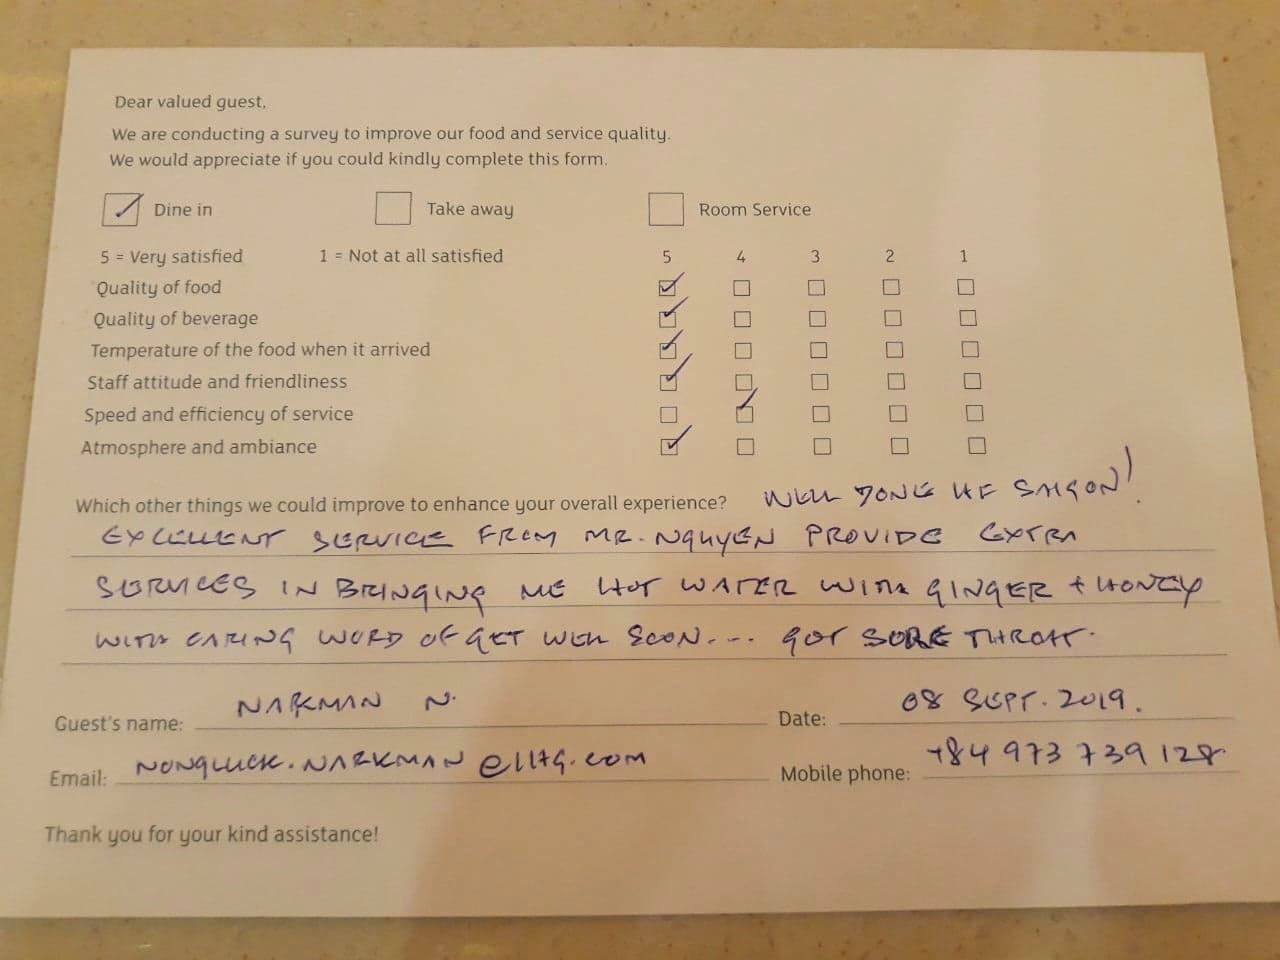 Dear valued guest,
We are conducting a survey to improve our food and service quality.
We would appreciate if you could kindly complete this form.
Dine in Take away Room Service
5 = Very satisfied 1 = Not at all satisfied 5 4 3 2 1
Quality of food
Quality of beverage
Temperature of the food when it arrived
Staff attitude and friendliness
Speed and efficiency of service
Atmosphere and ambiance
Which other things we could improve to enhance your overall experience? WELL DONE HF SAIGON!
EXCELLENT SERVICE FROM MR. NGUYEN PROVIDE EXTRA
SERVICES IN BRINGING ME HOT WATER WITH GINGER + HONEY
WITH CARING WORD OF GET WELL SOON.... GOT SORE THROAT.
Guest's name: NARKMAN N. Date: 08 SEPT. 2019.
Email: Mobile phone: +84 973 739 128
Thank you for your kind assistance!